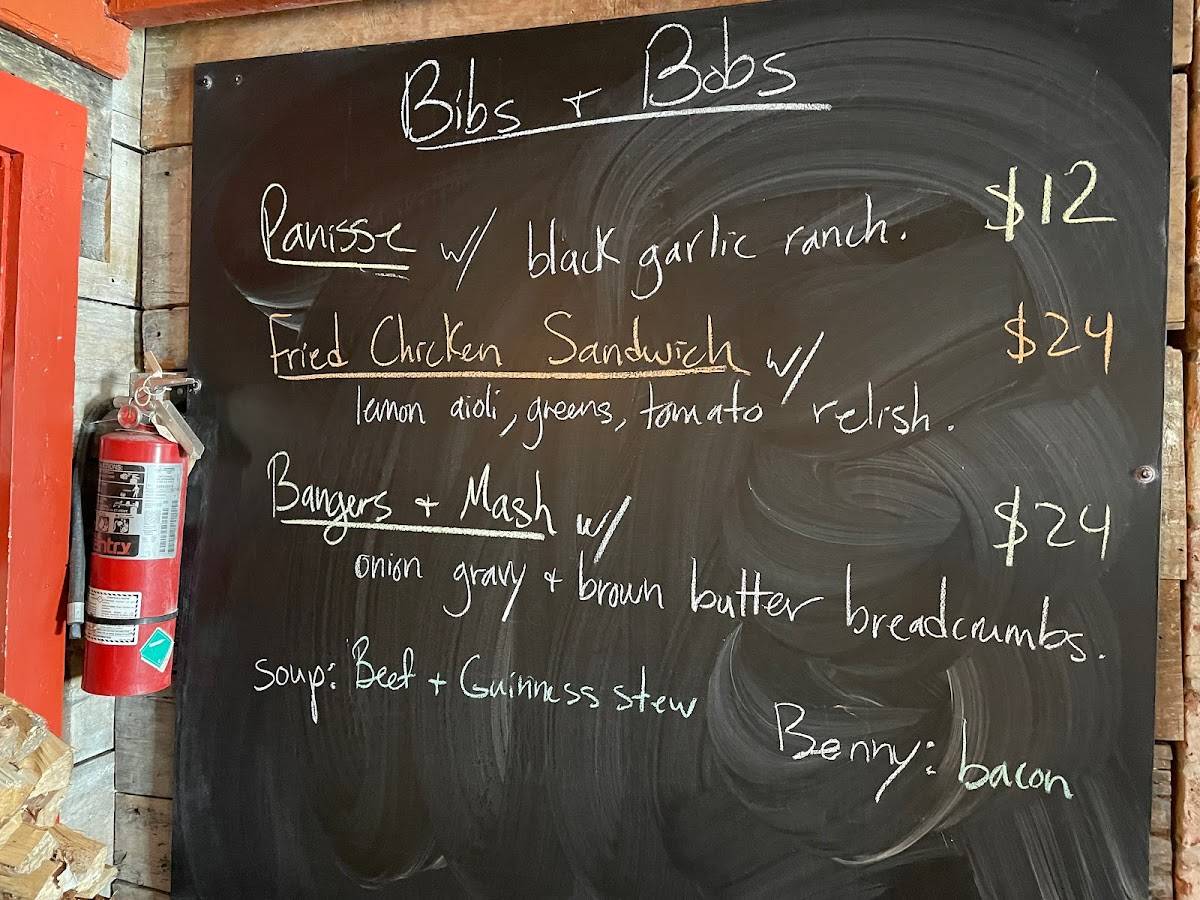 Bibs + Bobs
Panisse w/ black garlic ranch. $12
Fried Chicken Sandwich w/ $24
lemon aioli, greens, tomato relish.
Bangers + Mash w/ $24
onion gravy + brown butter breadcrumbs.
soup: Beef + Guinness stew
Benny: bacon